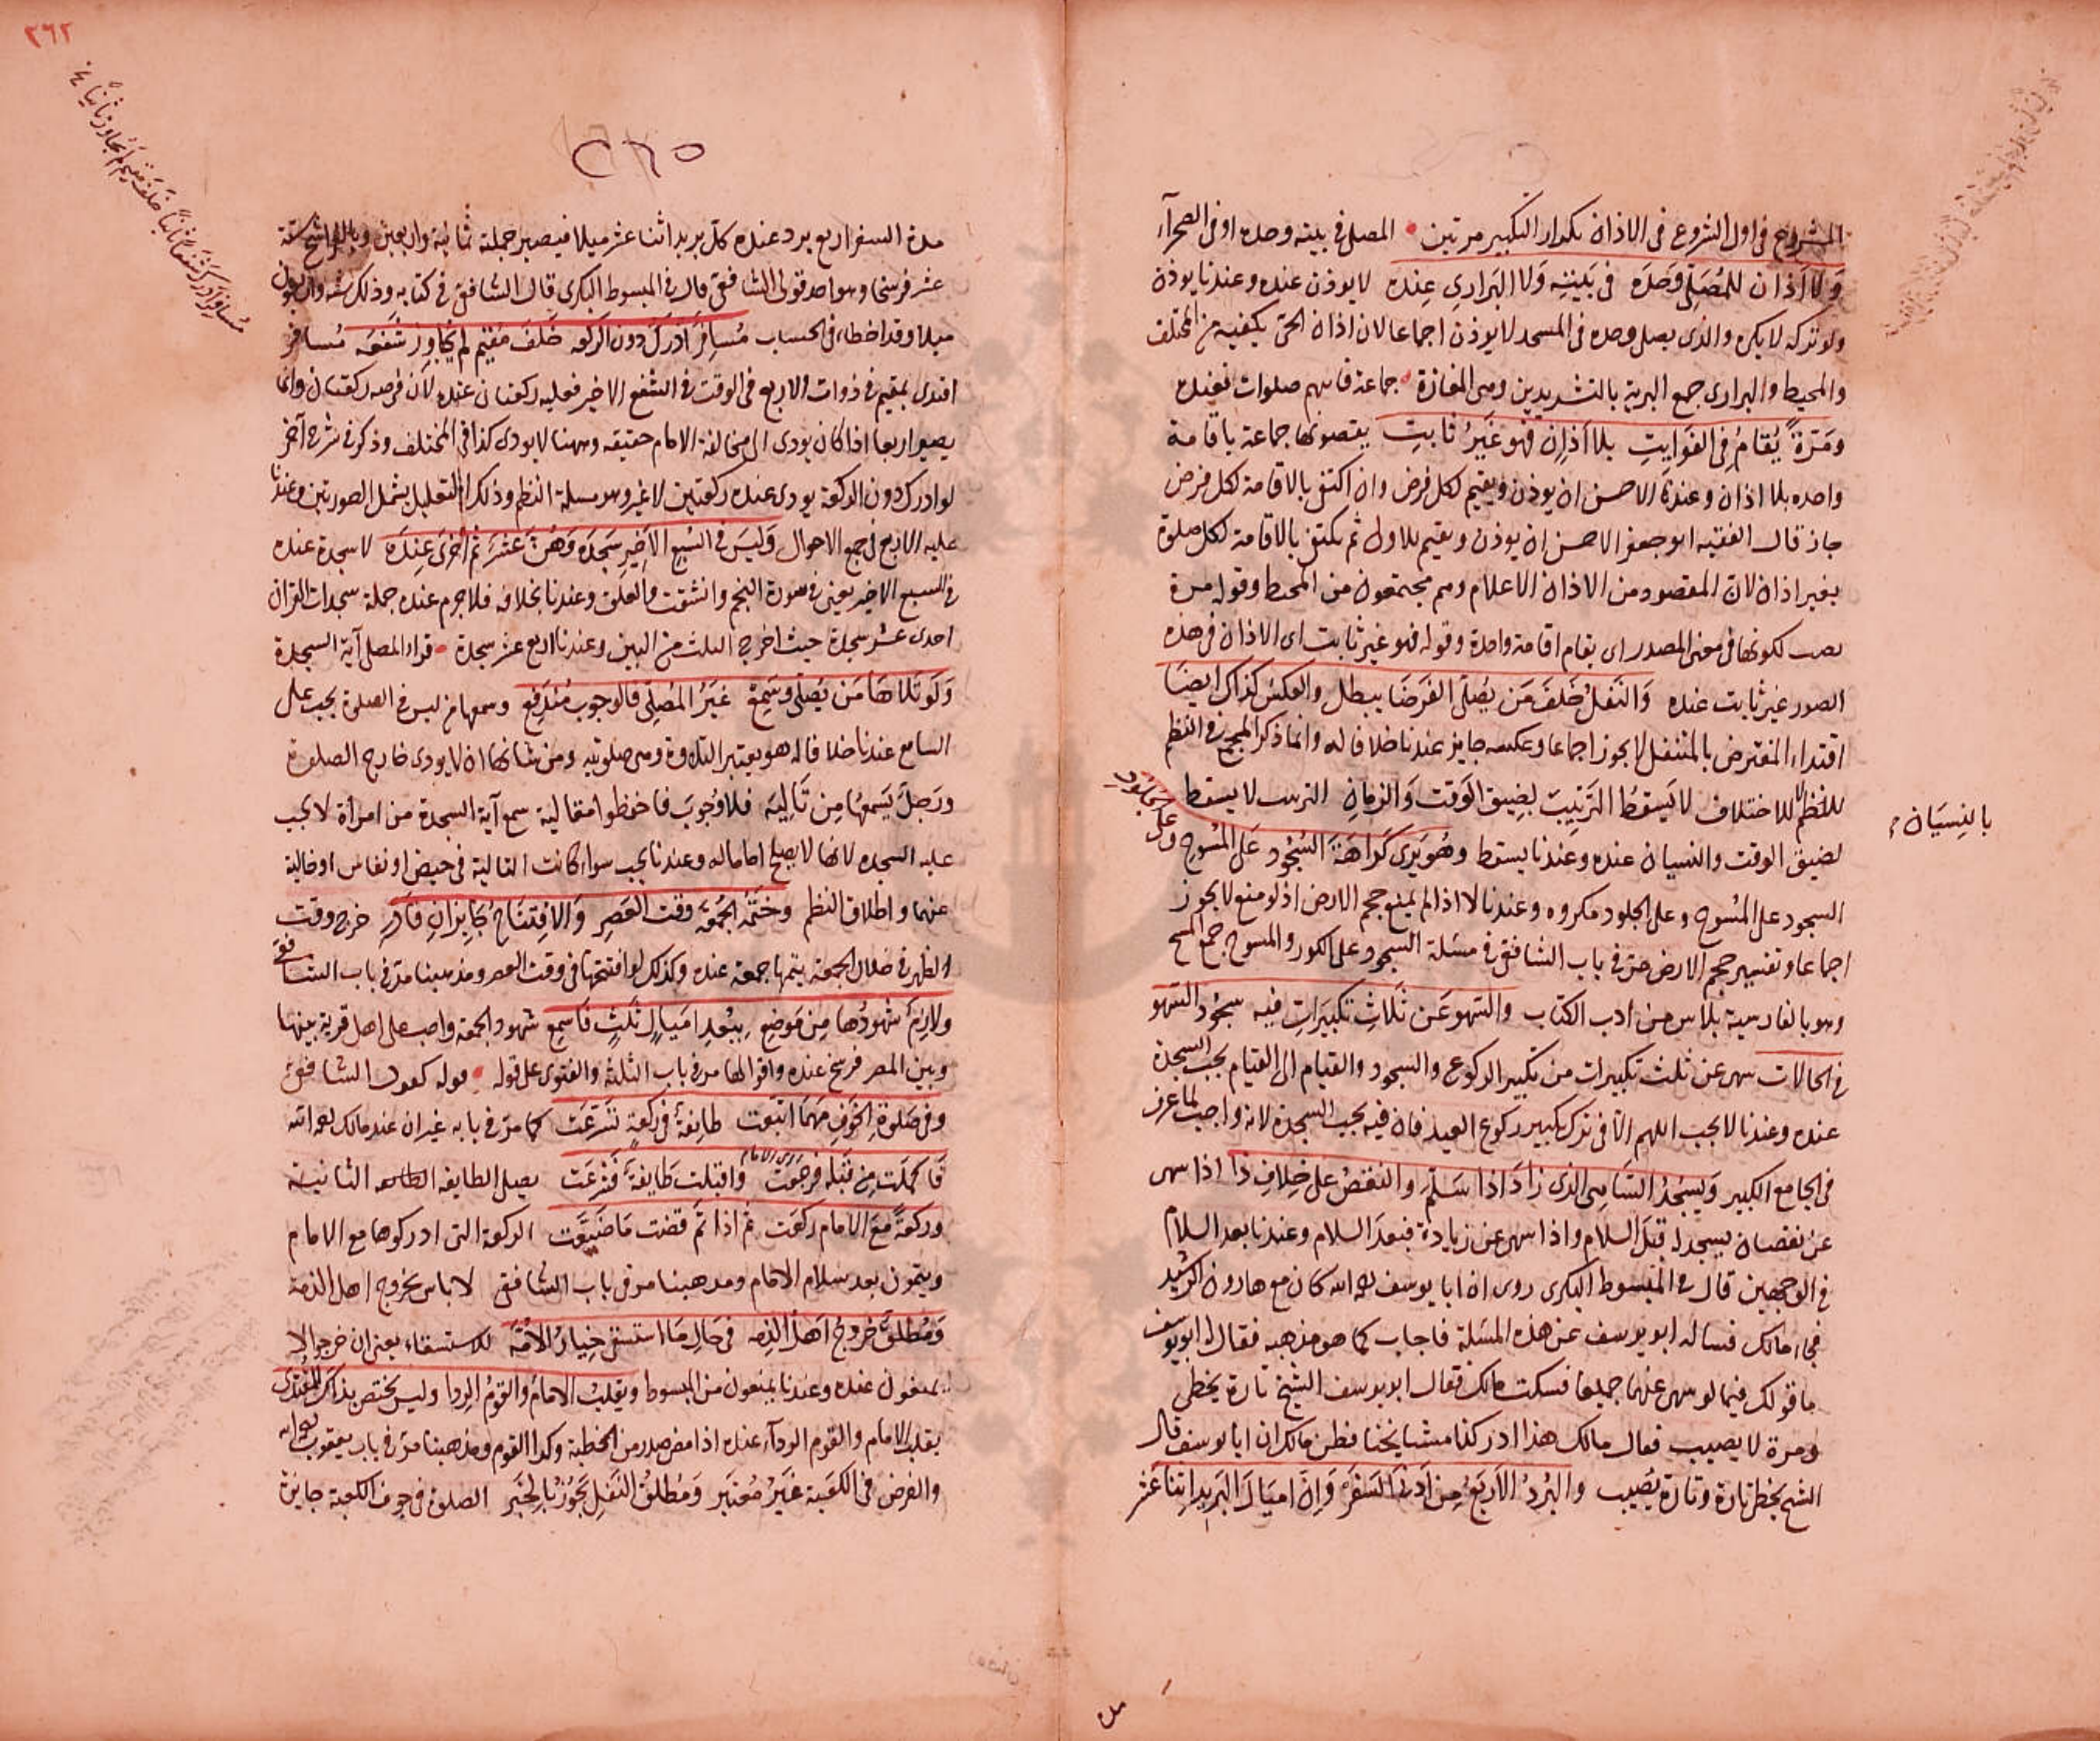 المشروع فى اول الشروع فى الاذان تكرار التكبير مرتين المصلى فى بيته وحده او فى الصحراء
وَلَا اَذَان للمُصَلّى وَحدَه فى بَيتِهِ وَلَا البَرارِى عِندَه لا يوذن عنده وعندنا يوذن
ولو تركه لا يكره والذى يصلى وحده فى المسجد لا يوذن اجماعا لان اذان الحى يكفيه من المختلف
والمحيط والبرارى جمع البرية بالتشديدين وهى المفازة جماعة فاتهم صلوات فعنده
ومَرّةً يُقامُ فِى الفَوايِتِ بلا اَذانٍ فهو غَيرُ ثابتِ يقضونها جماعة باقامة
واحده بلا اذان وعندنا الاحسن ان يوذن ويقيم لكل فرض وان اكتفى بالاقامة لكل فرض
جاز قال الفقيه ابو جعفر الاحسن ان يوذن ويقيم للاول ثم يكتفى بالاقامة لكل صلوة
بغير اذان لان المقصود من الاذان الاعلام وهم مجتمعون من المحيط وقوله مرة
نصب لكونها فى معنى المصدر اى يقام اقامة واحدة وقوله فهو غير ثابت اى الاذان فى هذه
الصور غير ثابت عنده وَالنَفلُ خَلفَ مَن يُصَلّى الفَرضَا يبطل والعكس كذاك ايضَا
اقتداء المفترض بالمتنفل لا يجوز اجماعا وعكسه جايز عندنا خلافا له وانما ذكر المجمع فى النظم
للاختلاف لا يَسقُطُ التَرتِيبَ لِضِيقِ الوَقت وَالزمانِ الترتيب لا يسقط
بالنِسيَان
لضيق الوقت والنسيان عنده وعندنا يسقط وهُو يَرَى كَراهَةَ السُجُود عَلى المُسُوحِ وعلى الجلود
السجود على المُسوح وعلى الجلود مكروه وعندنا لا اذا لم يمنع حجم الارض اذ لو منع لا يجوز
اجماعا وتفسير حجم الارض مر فى باب الشافعى فى مسئلة السجود على الكور والمسوح جمع المسح
وهو بالفارسية بلاس من ادب الكتاب والسَهو عَن ثَلاثِ تَكبِيراتِ فيه سجُود السهو
فى الحالات سهى عن ثلث تكبيرات من تكبير الركوع والسجود والقيام الى القيام يجب السجدة
عنده وعندنا لا يجب اللهم الا فى ترك تكبير ركوع العيد فان فيه يجب السجدة لانه واجب لما عرف
فى الجامع الكبير وَيسجُدُ السَاهِى الذى زَادَ اذا سَلّم والنقصُ على خِلافِ ذا اذا سهى
عن نقصان يسجد له قبل السلام واذا سهى عن زيادة فبعد السلام وعندنا بعد السلام
فى الوجهين قال فى المبسوط البكرى روى ان ابا يوسف رحمه الله كان مع هارون الرشيد
فجاء مالك فساله ابو يوسف عن هذه المسئلة فاجاب كما هو مذهبه فقال له ابو يوسف
ما قولك فيما لو سهى عنهما جميعا فسكت مالك فقال ابو يوسف الشيخ تارة يخطى
ومرة لا يصيب فقال مالك هذا ادركنا مشايخنا فظن مالك ان ابا يوسف قال
الشيخ يخطى تارة وتارة يُصيب والبُردُ الاَربَعُ مِن اَدنَى السَفَرِ وَاِنّ اميَالَ البَرِيدِ اثنا عشر
مدة
٢٦٢
مُسافِرٌ اَدرَكَ شَفعًا ثَانيًا خَلفَ مُقيمٍ لم يُجاوِز ثانيًا
٢٦٥
مدة السفر اربع برد عنده كل بريد اثنا عشر ميلا فيصير جملة ثمانية واربعين وبالفراسخ ستة
عشر فرسخا وهو احد قولى الشافعى قال فى المبسوط البكرى قال الشافعى فى كتابه وذلك ستة واربعون
ميلا وقد اخطاء فى الحساب مُسافِرٌ اَدرَكَ دون الركعه خَلفَ مُقيمٍ لم يُجَاوِز شَفعَه مُسافر
اقتدى بمقيم فى ذوات الاربع فى الوقت فى الشفع الاخير فعليه ركعتان عنده لان فرضه ركعتان وانما
يصير اربعا اذا كان يودى الى مخالفة الامام حقيقه وههنا لا يودى كذا فى المختلف وذكر فى شرح آخر
لو ادرك دون الركعة يودى عنده ركعتين لا غير وهو مسئلة النظم وذلك التعليل يشمل الصورتين وعندنا
عليه الاربع فى جميع الاحوال وَلَيسَ فى السُبعِ الاَخِيرِ سَجدَه وَهُنّ عَشرٌ ثم اُخرَى عِندَه لا سجدة عنده
فى السبع الاخير يعنى فى سورة النجم وانشقت والعلق وعندنا بخلافه فلا جرم عنده جملة سجدات القران
احدى عشر سجدة حيث اخرج الثلث من البين وعندنا اربع عشر سجدة قراء المصلى آية السجدة
وَلَو تَلاهَا مَن يُصَلّى وسَمِع غَيرُ المُصلّى فالوجوبُ مُندَفِع وسمعها من ليس فى الصلوة يجب على
السامع عندنا خلافا له هو يعتبر التلاوة وهى صلوتيه ومن شانها ان لا يودى خارج الصلوة
ورَجلٌ يَسمعُها مِن تَالِيَه فلا وُجوبَ فاحفظوا مقاليه سمع آية السجدة من امراة لا يجب
عليه السجده لانها لا يصلح اماما له وعندنا يجب سواء كانت التالية فى حيض او نفاس او خالية
عنهما واطلاق النظم وخَتمُه الجُمعَه وقتَ العَصرِ وَالافتِتَاحُ جَايزانِ فَادرِ خرج وقت
الظهر فى خلال الجمعة يتمها جمعة عنده وكذلك لو افتتحها فى وقت العصر ومذهبنا مر فى باب الشافعى
ولازِمٌ شهُودُها مِن مَوضعِ بِبُعدِ اَميَالٍ ثَلثٍ فَاسمع شهود الجمعة واجب على اهل قرية بينها
وبين المصر فرسخ عنده واقوالها مر فى باب الثلثة والفتوى على قوله قوله كقول الشافعى
وفى صَلوةِ الخَوفِ مَهمَا اتبَعت طائفةٌ فى ركعةٍ تسَرَّعَت كما مر فى بابه غير ان عند مالك رحمه الله
فَاكمَلَت مِن قَبلِه فرجَعَت واقبلت طَايفةٌ فَشَرَعَت يصلى الطايفه الثانية
وركعَةً مَع الامام ركعَت ثم اذا تَمّ قضت مَا ضَيّعَت الركعة التى ادركوها مع الامام
ويتمون بعد سلام الامام ومذهبنا مر فى باب الشافعى لا باس بخروج اهل الذمة
وَمُطلَقٌ خروجُ اَهلِ الذِمه فى حَالِ مَا استسقى خِيارُ الاُمّة للاستسقاء يعنى ان خرجوا لا
يمنعون عنده وعندنا يمنعون من المبسوط ويَقلِبُ الامامُ والقومُ الرِدا وليس يختص بذاكَ المُقتدَى
يقلب الامام والقوم الرداء عنده اذا مضى صدر من الخطبة وكذا القوم ومذهبنا مر فى باب يعقوب رحمه الله
والفرض فى الكَعبة غَيرُ مُعتبَر وَمُطلَقُ النَفلِ يَجُوزُ بالخَبَر الصلوة فى جوف الكعبة جايزة